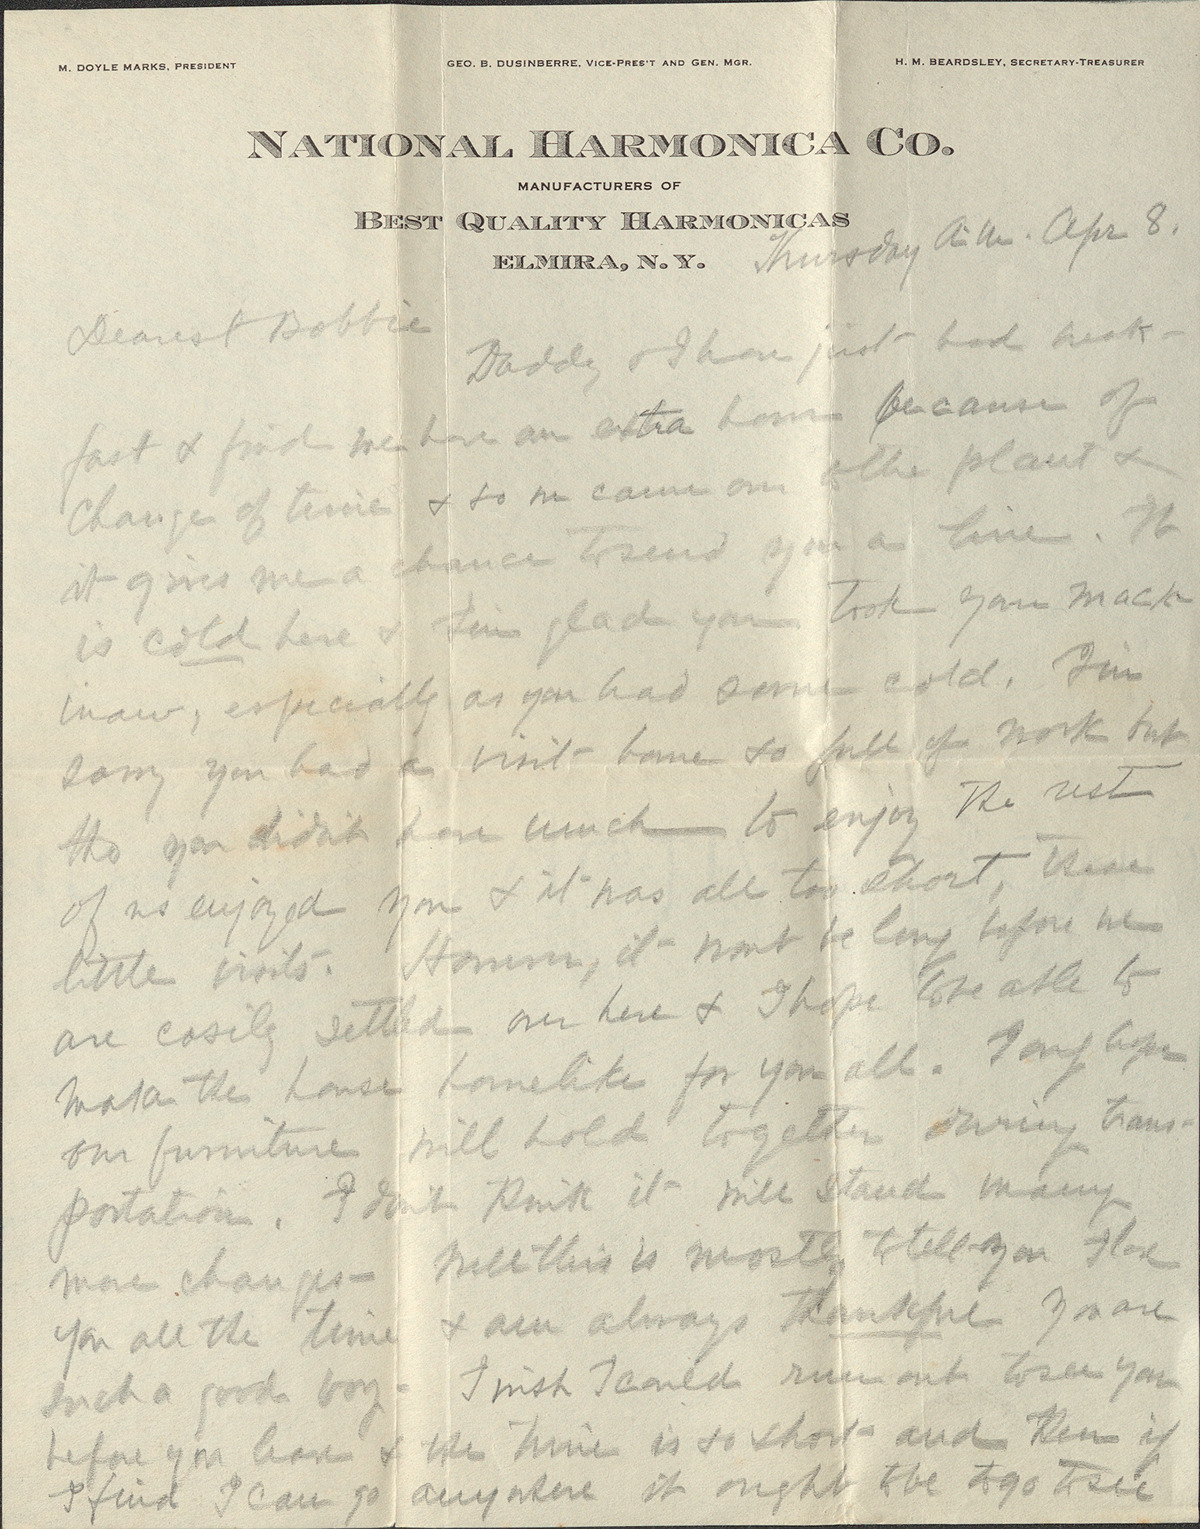 M. DOYLE MARKS, PRESIDENT
GEO. B. DUSINBERRE, VICE-PRES'T AND GEN. MGR.
H. M. BEARDSLEY, SECRETARY-TREASURER
NATIONAL HARMONICA CO.
MANUFACTURERS OF
BEST QUALITY HARMONICAS
ELMIRA, N. Y.
Thursday A.M. Apr 8.
Dearest Bobbie
Daddy & I have just had break-
fast & find we have an extra hour because of
change of time & so we came over to the plant &
it gives me a chance to send you a line. It
is cold here & I'm glad you took your mack-
inaw, especially as you had some cold. I'm
sorry you had a visit home so full of work but
tho you didn't have much to enjoy the rest
of us enjoyed you & it was all too short, these
little visits. However, it wont be long before we
are cosily settled over here & I hope to be able to
make the house homelike for you all. I only hope
our furniture will hold together during trans-
portation. I don't think it will stand many
more changes - Well this is mostly to tell you I love
you all the time & am always thankful you are
such a good boy - I wish I could run out to see you
before you leave & the time is so short and then if
I find I can go anywhere it ought to be to go to see